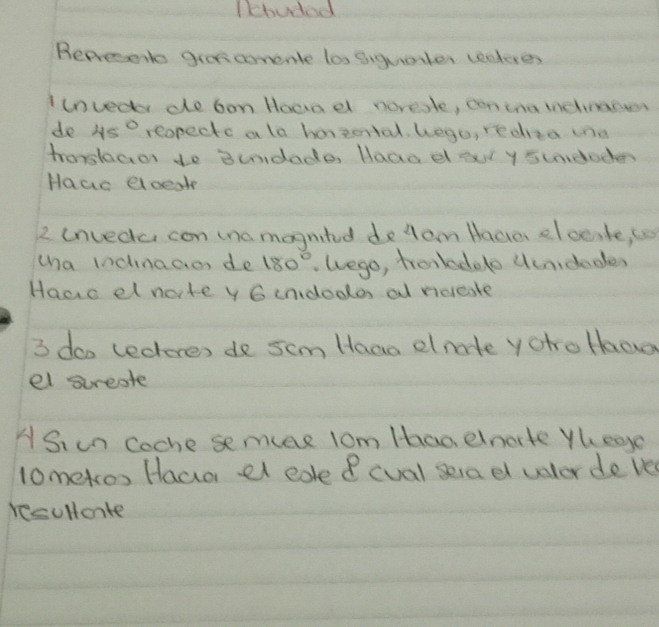 Actividad
Represento graficamente los siguientes vectores
1 un vector de 6cm Hacia el noreste, con una inclinacion
de 45° respecto a la horizontal. luego, realiza una
translacion de 3unidades Hacia el sur y 5unidades
Hacia el oeste
2 un vector con una magnitud de 4cm Hacia el oeste, co
una inclinacion de 180°. luego, trasladalo 4unidades
Hacia el norte y 6 unidades al noreste
3 dos vectores de 5cm Hacia el norte y otro Hacia
el sureste
4 Si un coche se mueve 10m Hacia el norte y luego
10 metros Hacia el este ¿ cual sera el valor de vec
resultante